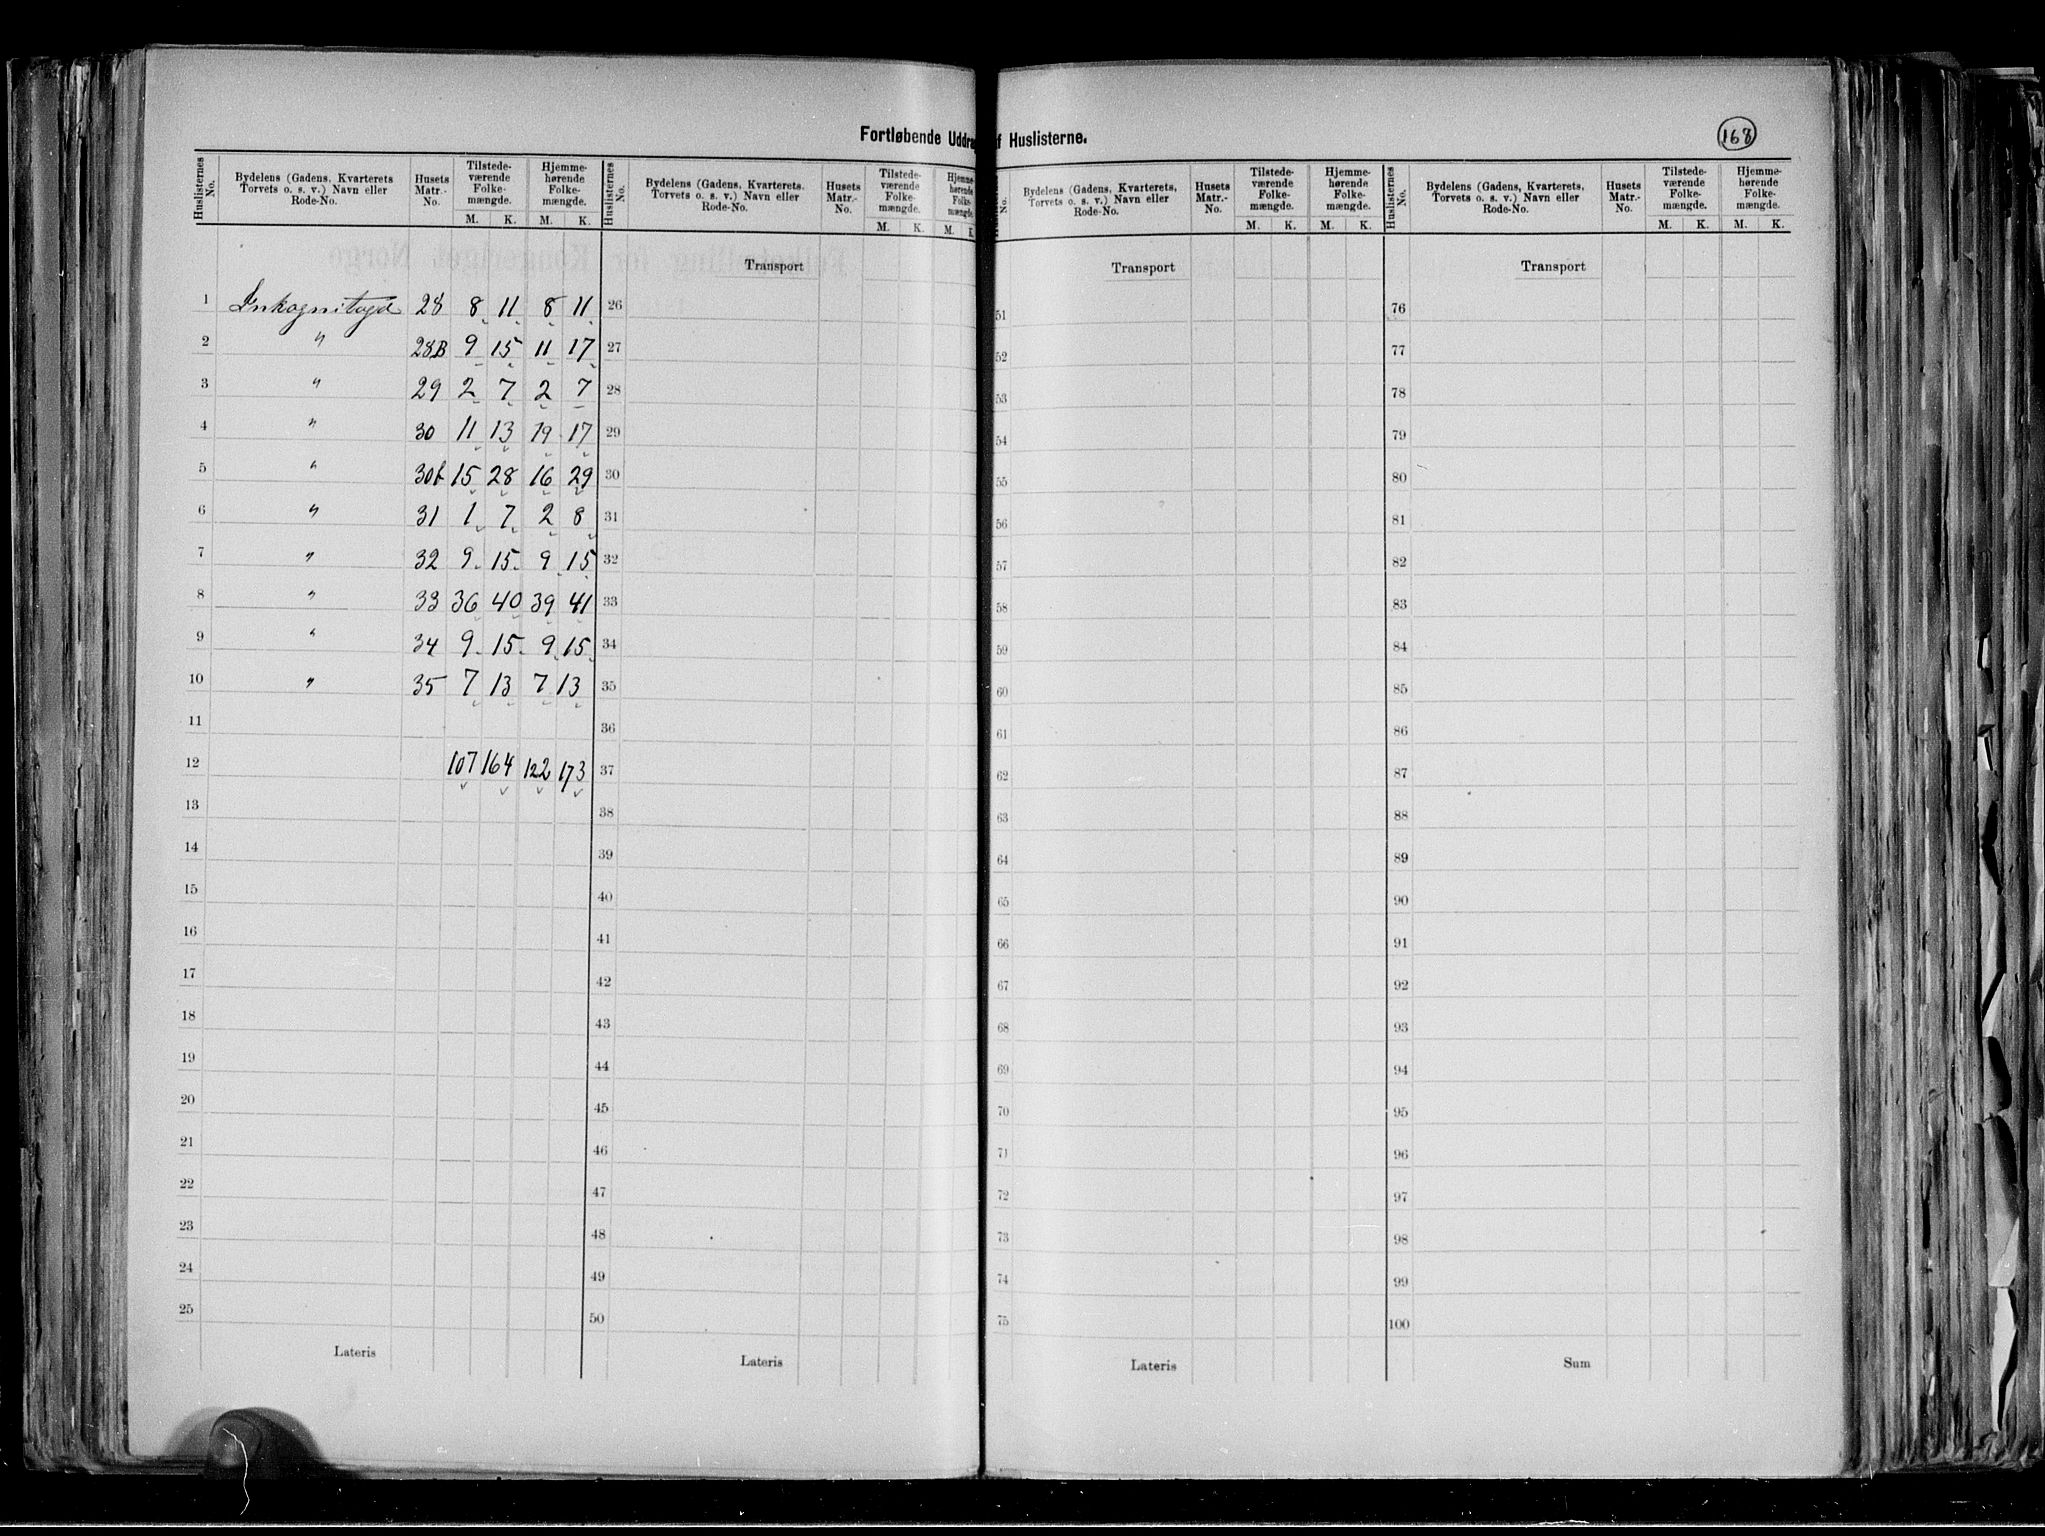 Fortløbende Uddra f Huslisterne.
168
Huslisternes No. Bydelens (Gadens, Kvarterets Torvets o. s. v.) Navn eller Rode-No. Husets Matr.-No. Tilstede-værende Folke-mængde. M. K. Hjemme-hørende Folke-mængde. M. K.
1 Inkognitogd 28 8 11 8 11
2 " 28B 9 15 11 17
3 " 29 2 7 2 7
4 " 30 11 13 19 17
5 " 30b 15 28 16 29
6 " 31 1 7 2 8
7 " 32 9 15 9 15
8 " 33 36 40 39 41
9 " 34 9 15 9 15
10 " 35 7 13 7 13
11
12 107 164 122 173
13
14
15
16
17
18
19
20
21
22
23
24
25
Lateris
Huslisternes No. Bydelens (Gadens, Kvarterets. Torvets o. s. v.) Navn eller Rode-No. Husets Matr.-No. Tilstede-værende Folke-mængde. M. K. Hjemme-hørende Folke-mængde. M. K.
Transport
26
27
28
29
30
31
32
33
34
35
36
37
38
39
40
41
42
43
44
45
46
47
48
49
50
Lateris
No. Bydelens (Gadens, Kvarterets, Torvets o. s. v.) Navn eller Rode-No. Husets Matr.-No. Tilstede-værende Folke-mængde. M. K. Hjemme-hørende Folke-mængde. M. K.
Transport
51
52
53
54
55
56
57
58
59
60
61
62
63
64
65
66
67
68
69
70
71
72
73
74
75
Lateris
Huslisternes No. Bydelens (Gadens, Kvarterets, Torvets o. s. v.) Navn eller Rode-No. Husets Matr.-No. Tilstede-værende Folke-mængde. M. K. Hjemme-hørende Folke-mængde. M. K.
Transport
76
77
78
79
80
81
82
83
84
85
86
87
88
89
90
91
92
93
94
95
96
97
98
99
100
Sum